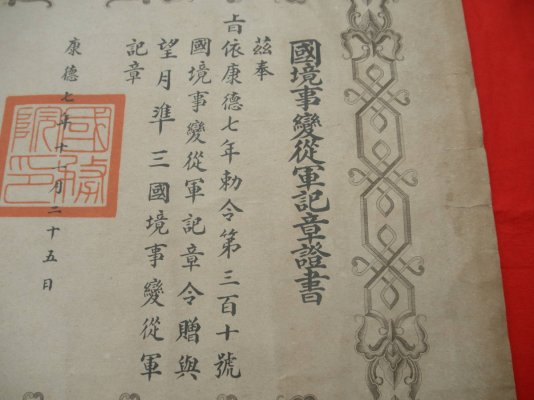 國境事變從軍記章證書
玆奉
旨依康德七年勅令第三百十號
國境事變從軍記章令贈與
望月準三國境事變從軍
記章
康德七年十月二十五日
國務
院印